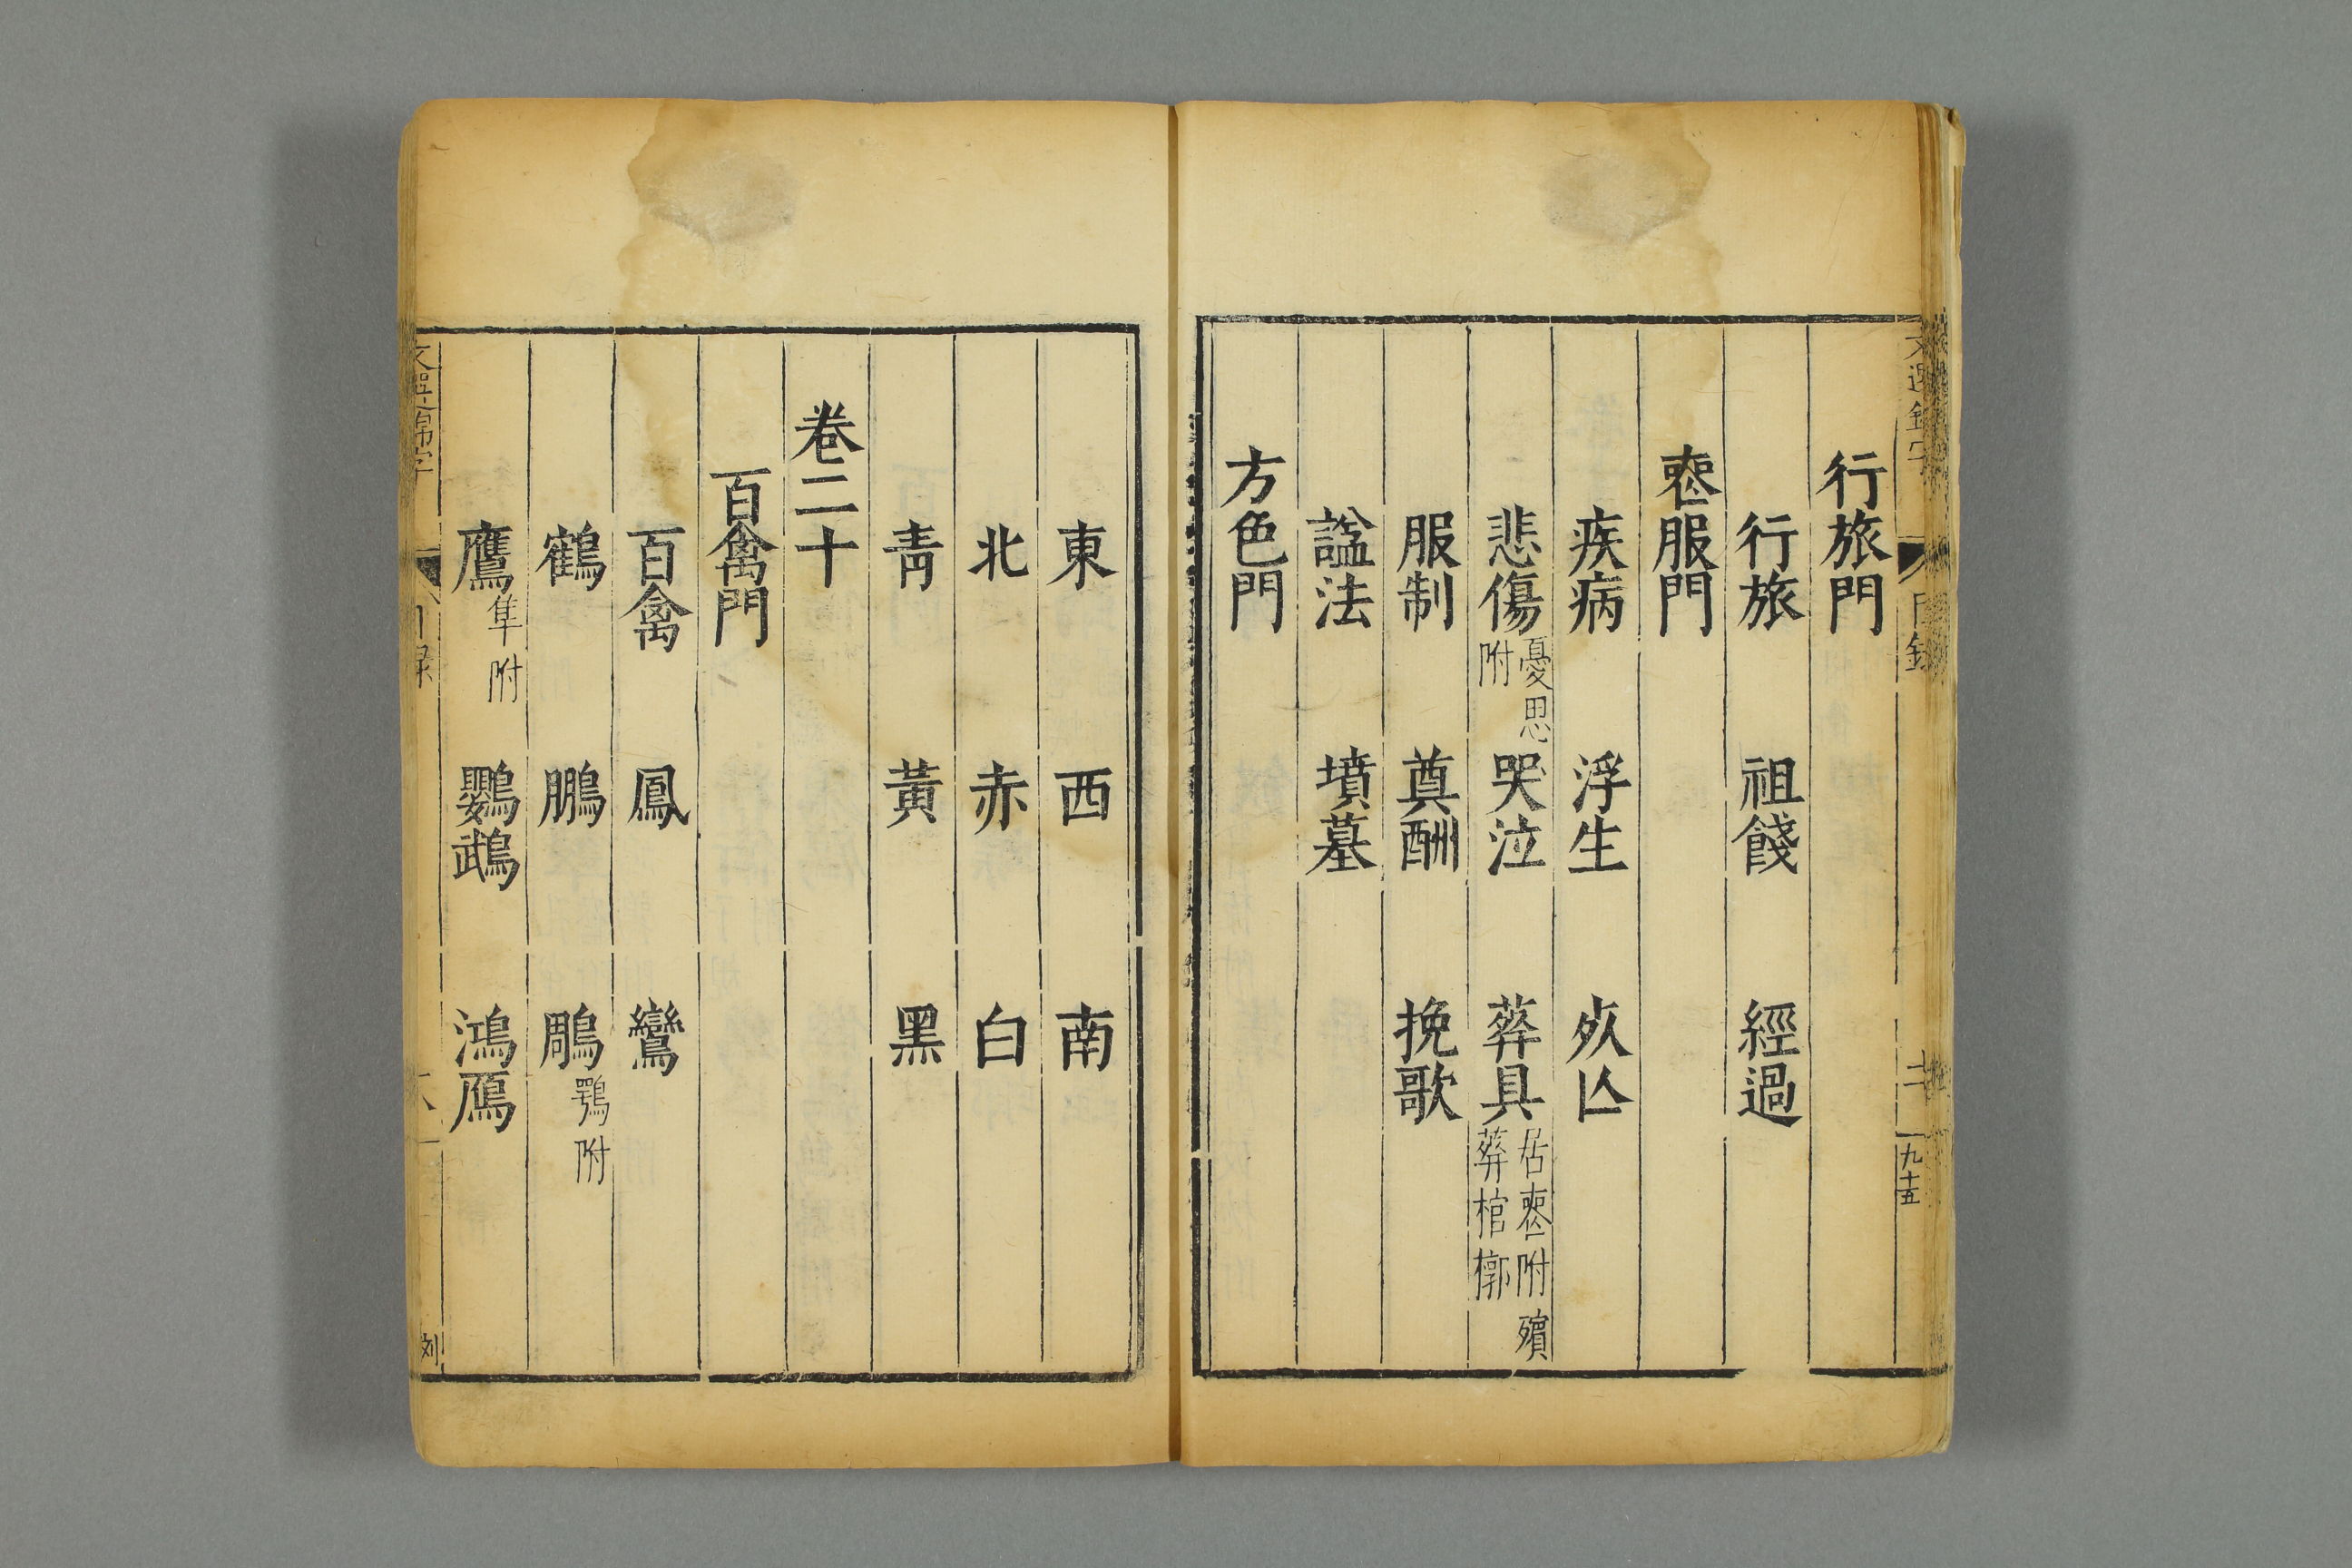 行旅門
行旅 祖餞 經過
喪服門
疾病 浮生 死亾
悲傷憂思附 哭泣 葬具居喪附殯葬棺槨
服制 奠酬 挽歌
諡法 墳墓
方色門
東 西 南
北 赤 白
青 黃 黑
卷二十
百禽門
百禽 鳳 鸞
鶴 鵬 鵰鶚附
鷹隼附 鸚鵡 鴻鴈
九十五